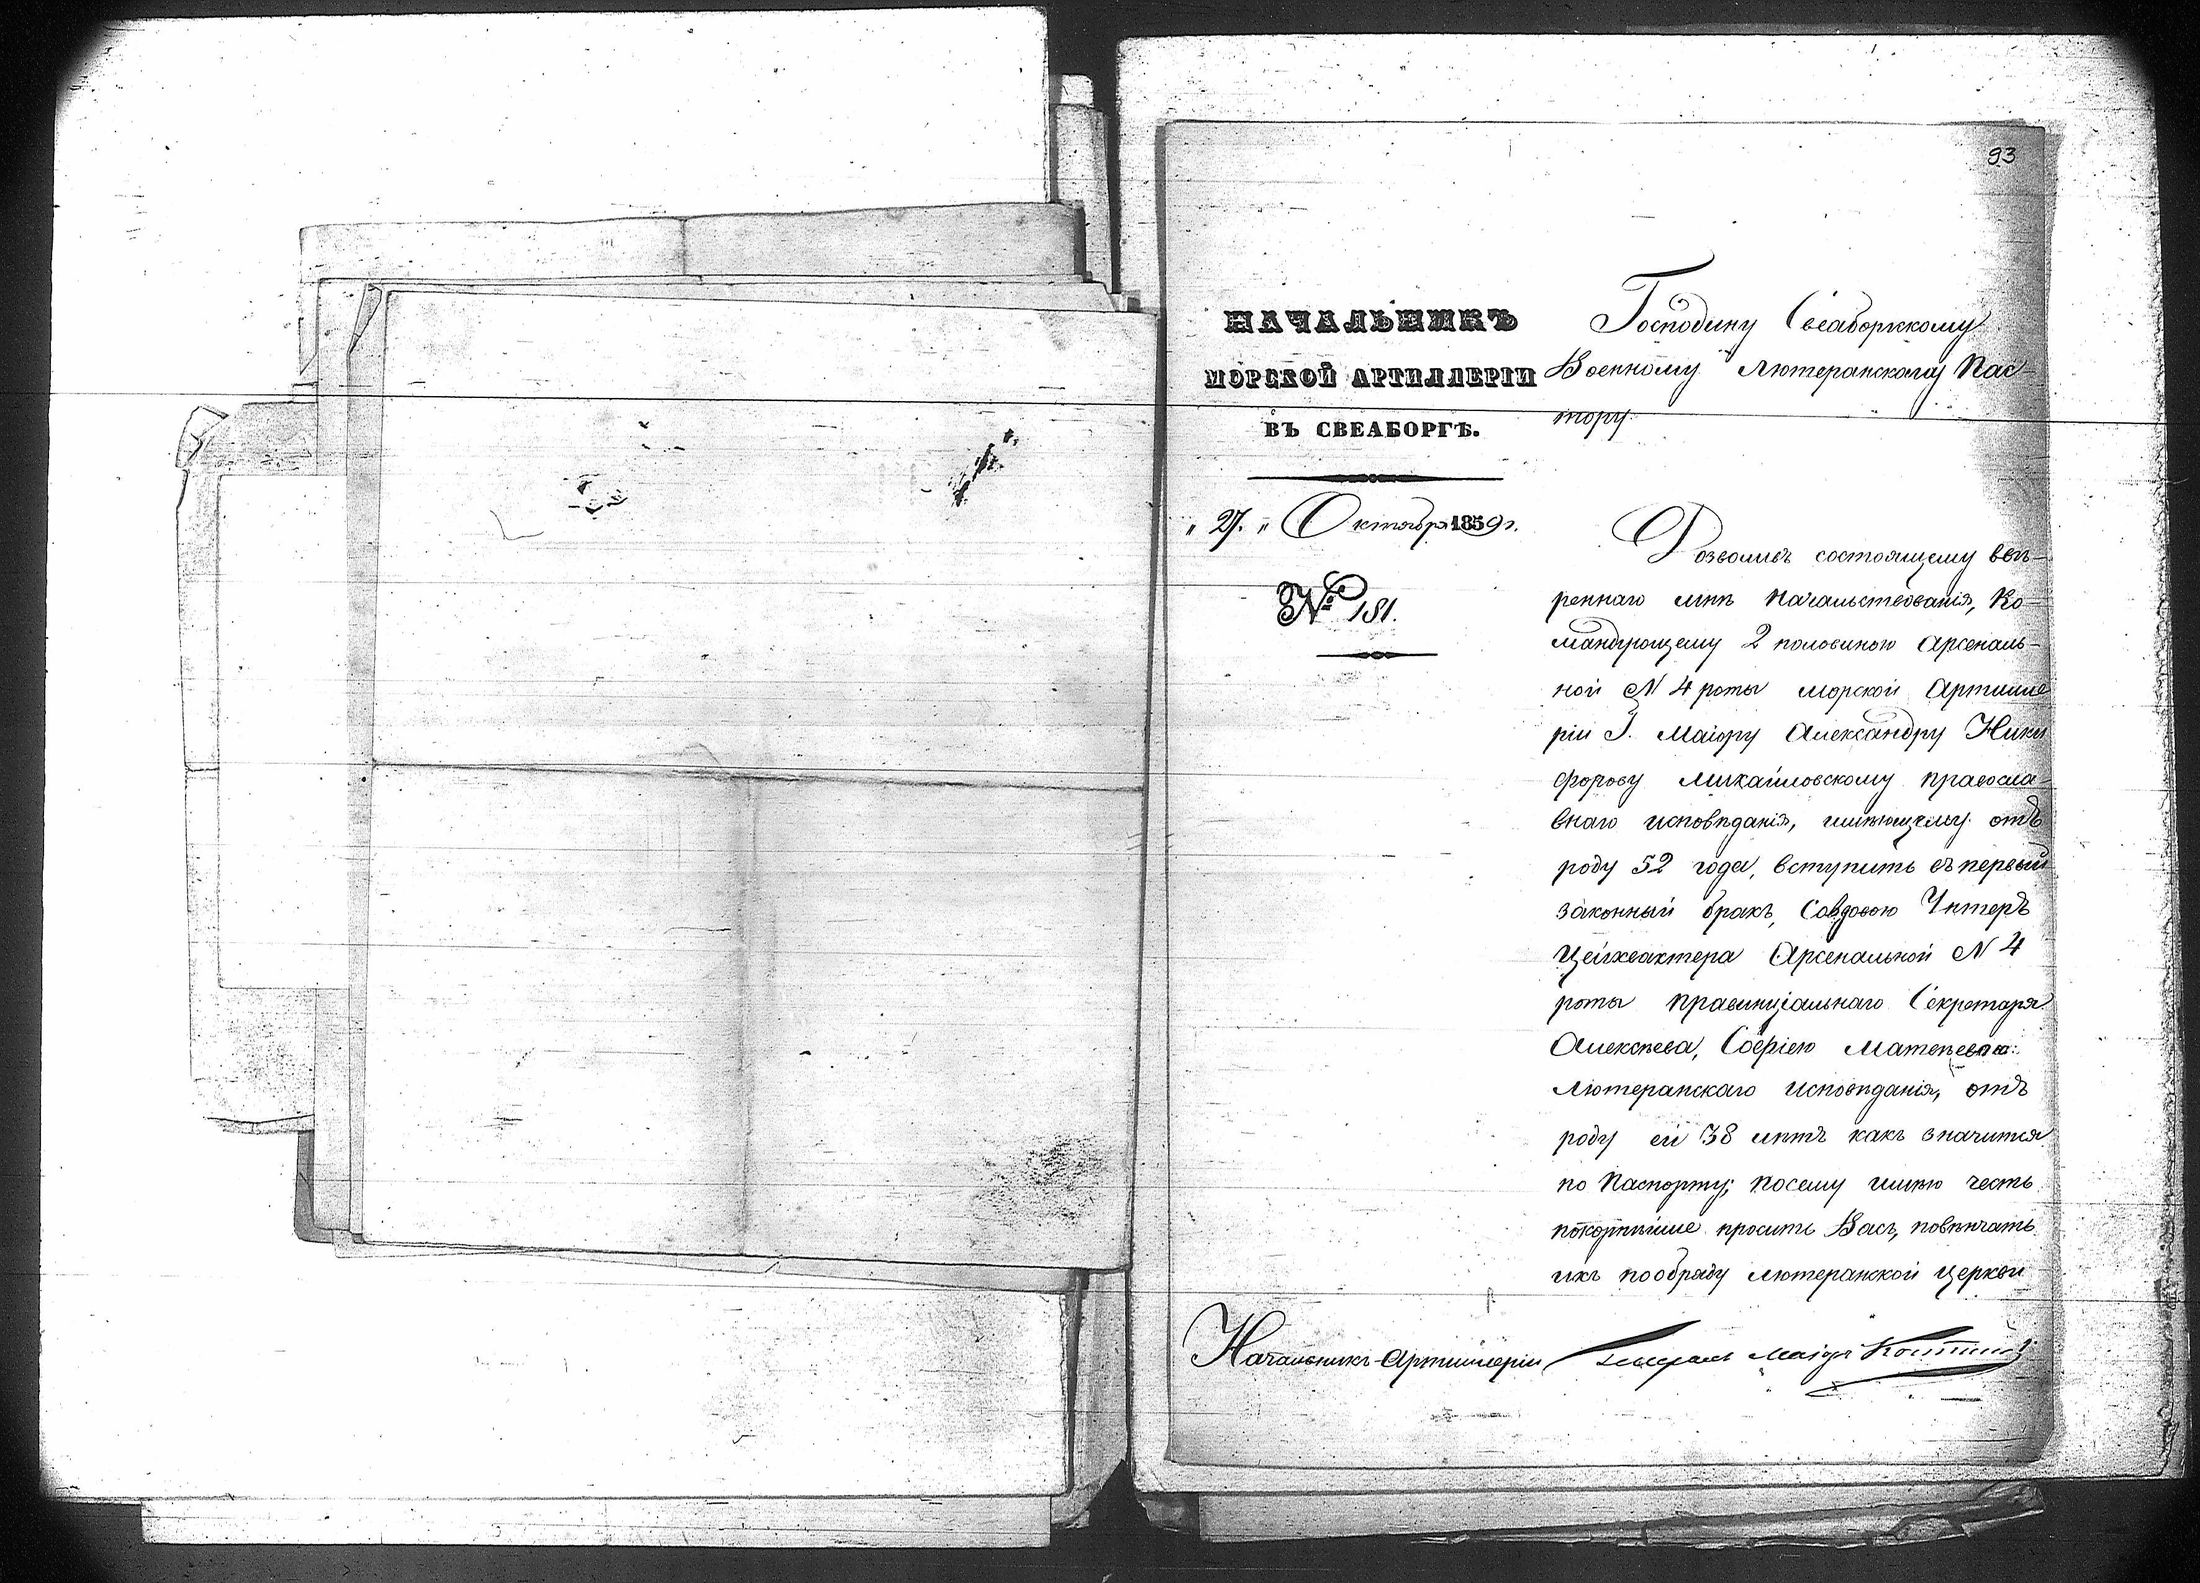 93
НАЧАЛЬНИКЪ
МОРСКОЙ АРТИЛЛЕРІИ
ВЪ СВЕАБОРГѢ.
„ 27. „ Октября 1859 г.
№ 181.
Господину Свеаборгскому
Военному Лютеранскому Пас-
тору
Розволивъ состоящему ввѣ-
реннаго мнѣ Начальствованія, Ко-
мандующему 2 половиною Арсеналь-
ной N 4 роты морской Артилле
ріи Г. Маіору Александру Ники
форову Михайловскому правосла-
внаго исповѣданія, имѣющему отъ
роду 52 года, вступить въ первый
законный бракъ, совдовою Унтеръ
Цейхвахтера Арсенальной N 4
роты правинціальнаго Секретаря
Алексѣева, Софіею Матвѣевою
Лютеранскаго исповѣданія, отъ
роду ей 38 лѣтъ какъ значится
по Паспорту; посему имѣю честь
покорнѣйше просить Васъ, повѣнчать
ихъ пообряду лютеранской церкви
Начальникъ Артиллеріи Генералъ Маіоръ